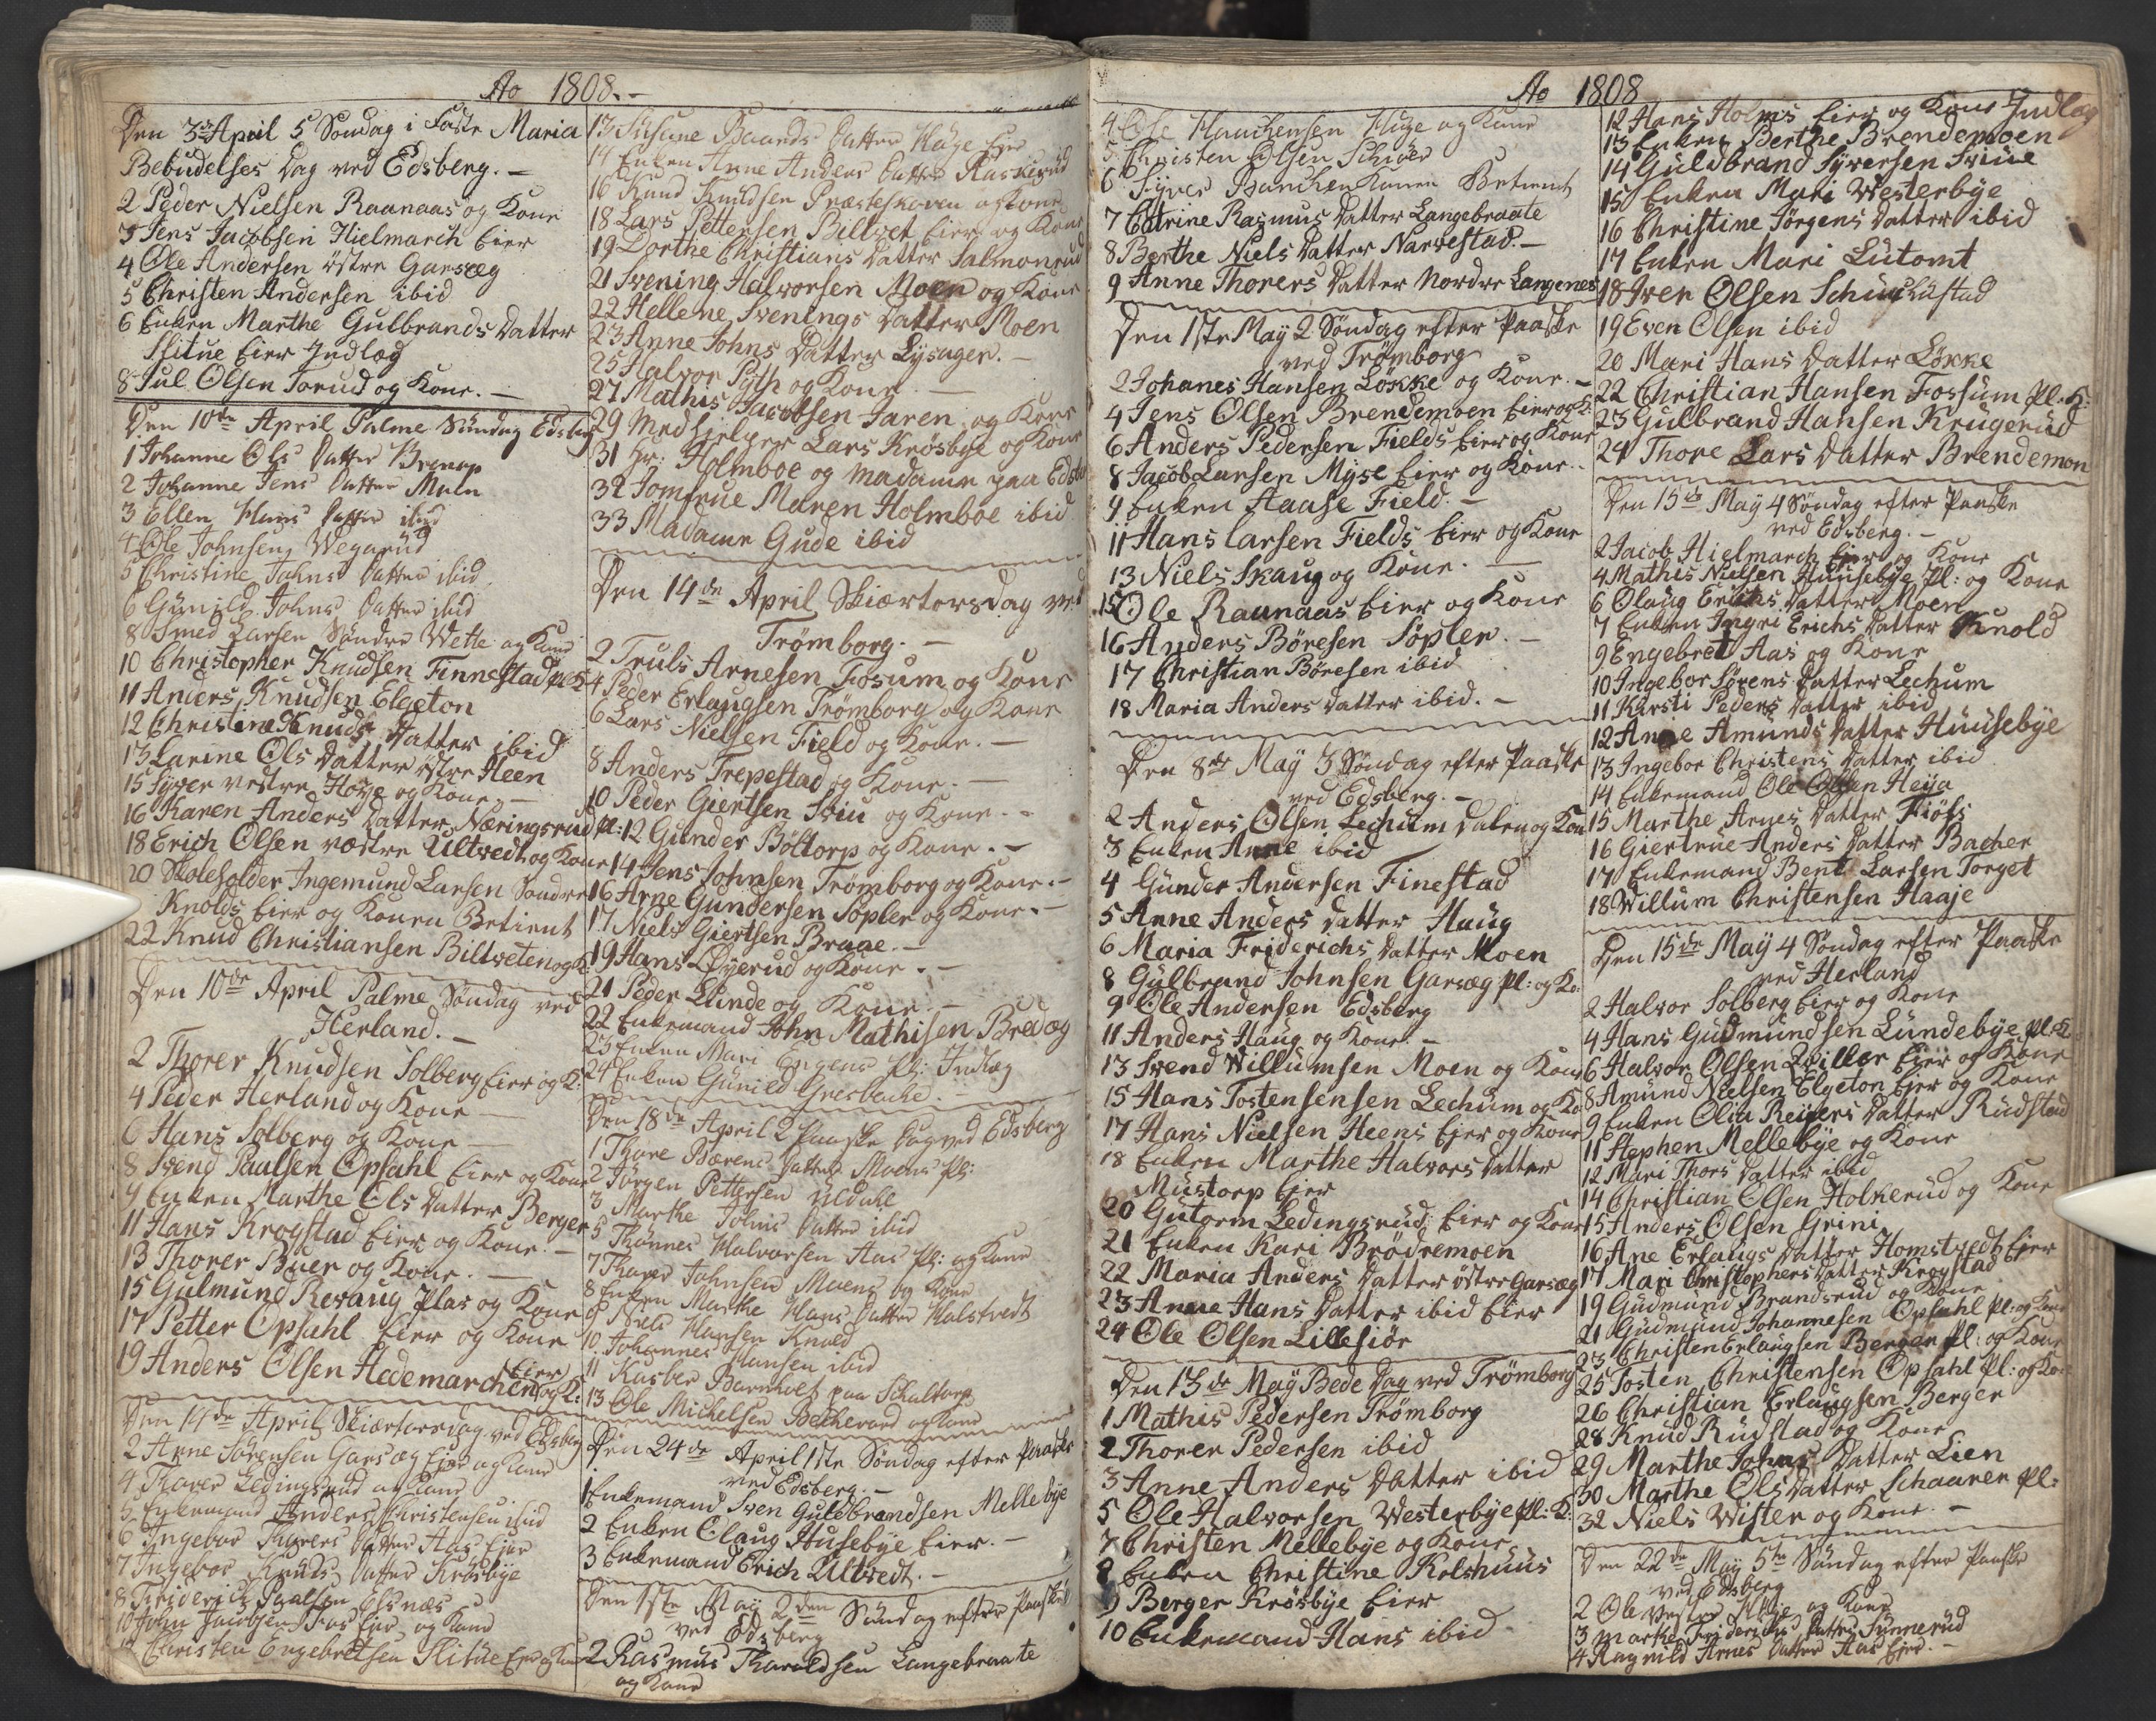 Ao 1808.-
Den 3die April 5 Søndag i Faste Maria
Bebudelses Dag ved Edsberg. -
2 Peder Nielsen Raanaas og Kone
3 Jens Jacobsen Hielmarch Eier
4 Ole Andersen östre Garsæg
5 Christen Andersen ibid
6 Enken Marthe Gulbrands Datter
Slitue Eier Indlæg
8 Jul Olsen Torud og Kone. -
Den 10de April Palme Søndag Edsberg
1 Johanne Ols Datter
2 Johanne Jens Datter
3 Ellen Hans Datter ibid
4 Ole Johnsen Wegarud
5 Christine Johns Datter ibid
6 Gunild Johns Datter ibid
8 Smed Larsen Søndre Wette og Kone
10 Christopher Knudsen Finnestad pl: K:
11 Anders Knudsen Elgeton
12 Christine Knuds Datter ibid
13 Larine Ols Datter östre Heen
15 Syver vestre Høye og Kone -
16 Karen Anders Datter Næringsrud pl:
18 Erich Olsen væstre Ultvedt og Kone
20 Skoleholder Ingemund Larsen Søndre
Knolds Eier og Konen Betient
22 Knud Christiansen Biltveten og K:
Den 10de April Palme Søndag ved
Herland. -
2 Thorer Knudsen Solberg Eier og K:
4 Peder Herland og Kone
6 Hans Solberg og Kone -
8 Svend Paulsen Opsahl Eier og Kone
9 Enken Marthe Ols Datter Berger
11 Hans Krogstad Eier og Kone. -
13 Thorer Buer og Kone. -
15 Gulmund Revaug Plas og Kone
17 Petter Opsahl Eier og Kone
19 Anders Olsen Hedemarchen Eier og K:
Den 14de April Skiærtorsdag ved Edsberg
2 Arne Sörensen Garsæg Eier og Kone
4 Thorer Ledingsrud og Kone
5 Enkemand Anders Christensen ibid
6 Ingebor Thorers Datter Aas Eier
7 Ingebor Knuds Datter Krösbye
8 Friderich Paulsen Elsnæs
10 John Jacobsen Eier og Kone
12 Christen Engebretsen Slitue Eier og Kone
13 Susane Datter Høye Eier
14 Enken Anne Anders Datter
16 Knud Knudsen Præsteskoven og Kone
18 Lars Pettersen Biltvet Eier og Kone
19 Dorthe Christians Datter Salmonrud
21 Svening Halvorsen Moen og Kone
22 Hellene Svenings Datter Moen
23 Anne Johns Datter Lysager. -
25 Halvor Pyth og Kone -
27 Mathis Jacobsen Jaren og Kone
29 Medhielper Lars Krösbye og Kone
31 Hr: Holmboe og Madame paa Edsberg
32 Jomfrue Maren Holmboe ibid
33 Madame Gude ibid
Den 14de April Skiærtorsdag ved
Trømborg. -
2 Truls Arnesen Fosum og Kone
4 Peder Erlaugsen Trømborg og Kone
6 Lars Nielsen Field og Kone. -
8 Anders Trepestad og Kone. -
10 Peder Giertsen Sviu og Kone. -
12 Gunder Böltorp og Kone. -
14 Jens Johnsen Trømborg og Kone. -
16 Arne Gundersen Sopler og Kone. -
17 Niels Giertsen Braae. -
19 Hans Øyerud og Kone. -
21 Peder Lunde og Kone. -
22 Enkemand John Mathisen Bredæg
23 Enken Mari Engens pl: Indlæg
24 Enken Gunild Gresbache. -
Den 18de April 2 Paaske Dag ved Edsberg
1 Thore Datter Moens pl:
2 Jörgen Pettersen Uldahl
3 Marthe Johns Datter ibid
5 Thönnes Halvorsen Aas pl: og Kone
7 Thorer Johnsen Moens og Kone
8 Enken Marthe Hans Datter Halstvedt
9 Niels Hansen Knold
10 Johannes Hansen ibid
11 Kasber Barnholt paa Schultorp
13 Ole Michelsen Bechevard og Kone
Den 24de April 1ste Søndag efter Paaske
ved Edsberg. -
1 Enkemand Sven Guldbrandsen Mellebye
2 Enken Olaug Husebye Eier. -
3 Enkemand Erich Ultvedt. -
Den 1ste May 2den Søndag efter Paaske
ved Edsberg
2 Rasmus Tharaldsen Langebraate
og Kone
Ao 1808
4 Ole Haachensen Høye og Kone
5 Christen Olsen Schiøer
6 Syver Konen Betient
7 Catrine Rasmus Datter Langebraate
8 Berthe Niels Datter Narvestad. -
9 Anne Thorers Datter Nordre Langenes
Den 1ste May 2 Søndag efter Paaske
ved Trømborg
2 Johanes Hansen Løkke og Kone. -
4 Jens Olsen Brendemoen Eier og K:
6 Anders Pedersen Fields Eier og Kone
8 Jacob Larsen Myse Eier og Kone. -
9 Enken Aaase Field. -
11 Hans Larsen Fields Eier og Kone
13 Niels Skaug og Kone. -
15 Ole Raunaas Eier og Kone
16 Anders Böresen Söpler. -
17 Christian Böresen ibid
18 Maria Anders Datter ibid. -
Den 8de May 3 Søndag efter Paaske
ved Edsberg. -
2 Anders Olsen Lechum Dalen og Kone
3 Enken Anne ibid
4 Gunder Andersen Finestad
5 Anne Anders Datter Haug
6 Maria Friderichs Datter Moen
8 Gulbrand Johnsen Garsæg pl: og Ko:
9 Ole Andersen Edsberg
11 Anders Haug og Kone. -
13 Svend Willumsen Moen og Kone
15 Hans Tostensensen Lechum og Ko
17 Hans Nielsen Heens Eier og Kone
18 Enken Marthe Halvors Datter
Mustorp Eier
20 Gutorm Ledingsrud Eier og Kone
21 Enken Kari Brödremoen
22 Maria Anders Datter östre Garsæg
23 Anne Hans Datter ibid Eier
24 Ole Olsen Lillesiör
Den 13de May Bede Dag ved Trømborg
1 Mathis Pedersen Trømborg
2 Thorer Pedersen ibid
3 Anne Anders Datter ibid
5 Ole Halvorsen Westerbye pl: K:
7 Christen Mellebye og Kone
8 Enken Christine Kolshuus
9 Berger Krösbye Eier
10 Enkemand Hans ibid
12 Hans Holmes Eier og Kone Indlæg
13 Enken Berthe Brendemoen
14 Guldbrand Syversen Sviue
15 Enken Mari Westerbye
16 Christine Jörgens Datter ibid
17 Enken Mari Lutomt
18 Iver Olsen Schuglustad
19 Even Olsen ibid
20 Mari Hans Datter Løkke
22 Christian Hansen Fossum Pl. K:
23 Gulbrand Hansen Krugerud
24 Thore Lars Datter Brendemon
Den 15de May 4 Søndag efter Paaske
ved Edsberg. -
2 Jacob Hielmarch Eier og Kone
4 Mathis Nielsen Huusebye Pl: og Kone
6 Olaug Erichs Datter Moen
7 Enken Ingri Erichs Datter Knold
9 Engebret Aas og Kone
10 Ingebor Sørens Datter Lechum
11 Karsti Peders Datter ibid
12 Anne Amunds Datter Huusebye
13 Ingebor Christens Datter ibid
14 Enkemand Ole Olsen Heya
15 Marthe Arnes Datter Fiøs
16 Giertrue Anders Datter Bacher
17 Enkemand Bent Larsen Torget
18 Willum Christensen Haaje
Den 15de May 4 Søndag efter Paaske
ved Herland
2 Halvor Solberg Eier og Kone
4 Hans Gudmundsen Lundebye Pl. K
6 Halvor Olsen Qviller Eier og Kone
8 Amund Nielsen Elgeton Eier og Kone
9 Enken Olia Reiers Datter Rudstad
11 Stephen Mellebye og Kone
12 Mari Thors Datter ibid
14 Christian Olsen Holkerud og Kone
15 Anders Olsen Grini
16 Ane Erlaugs Datter Homstvedt Eier
17 Mari Christophers Datter Krogstad Eier
19 Gudmund Brandsrud og Kone
21 Gudmund Johannesen Opsahl Pl: og Kone
23 Christen Erlaugsen Berger Pl: og Kone
25 Tosten Christensen Opsahl Pl: og Ko:
26 Christian Erlaugsen Berger
28 Knud Rudstad og Kone
29 Marthe Johns Datter Lien
30 Marthe Ols Datter Schaaren Pl:
32 Niels Wister og Kone. -
Den 22de May 5te Søndag efter Paaske
ved Edsberg
2 Ole Vestre Høie og Kone
3 Marthe Friderichs Datter Synnerud
4 Ragnild Arnes Datter Aas Eier. -